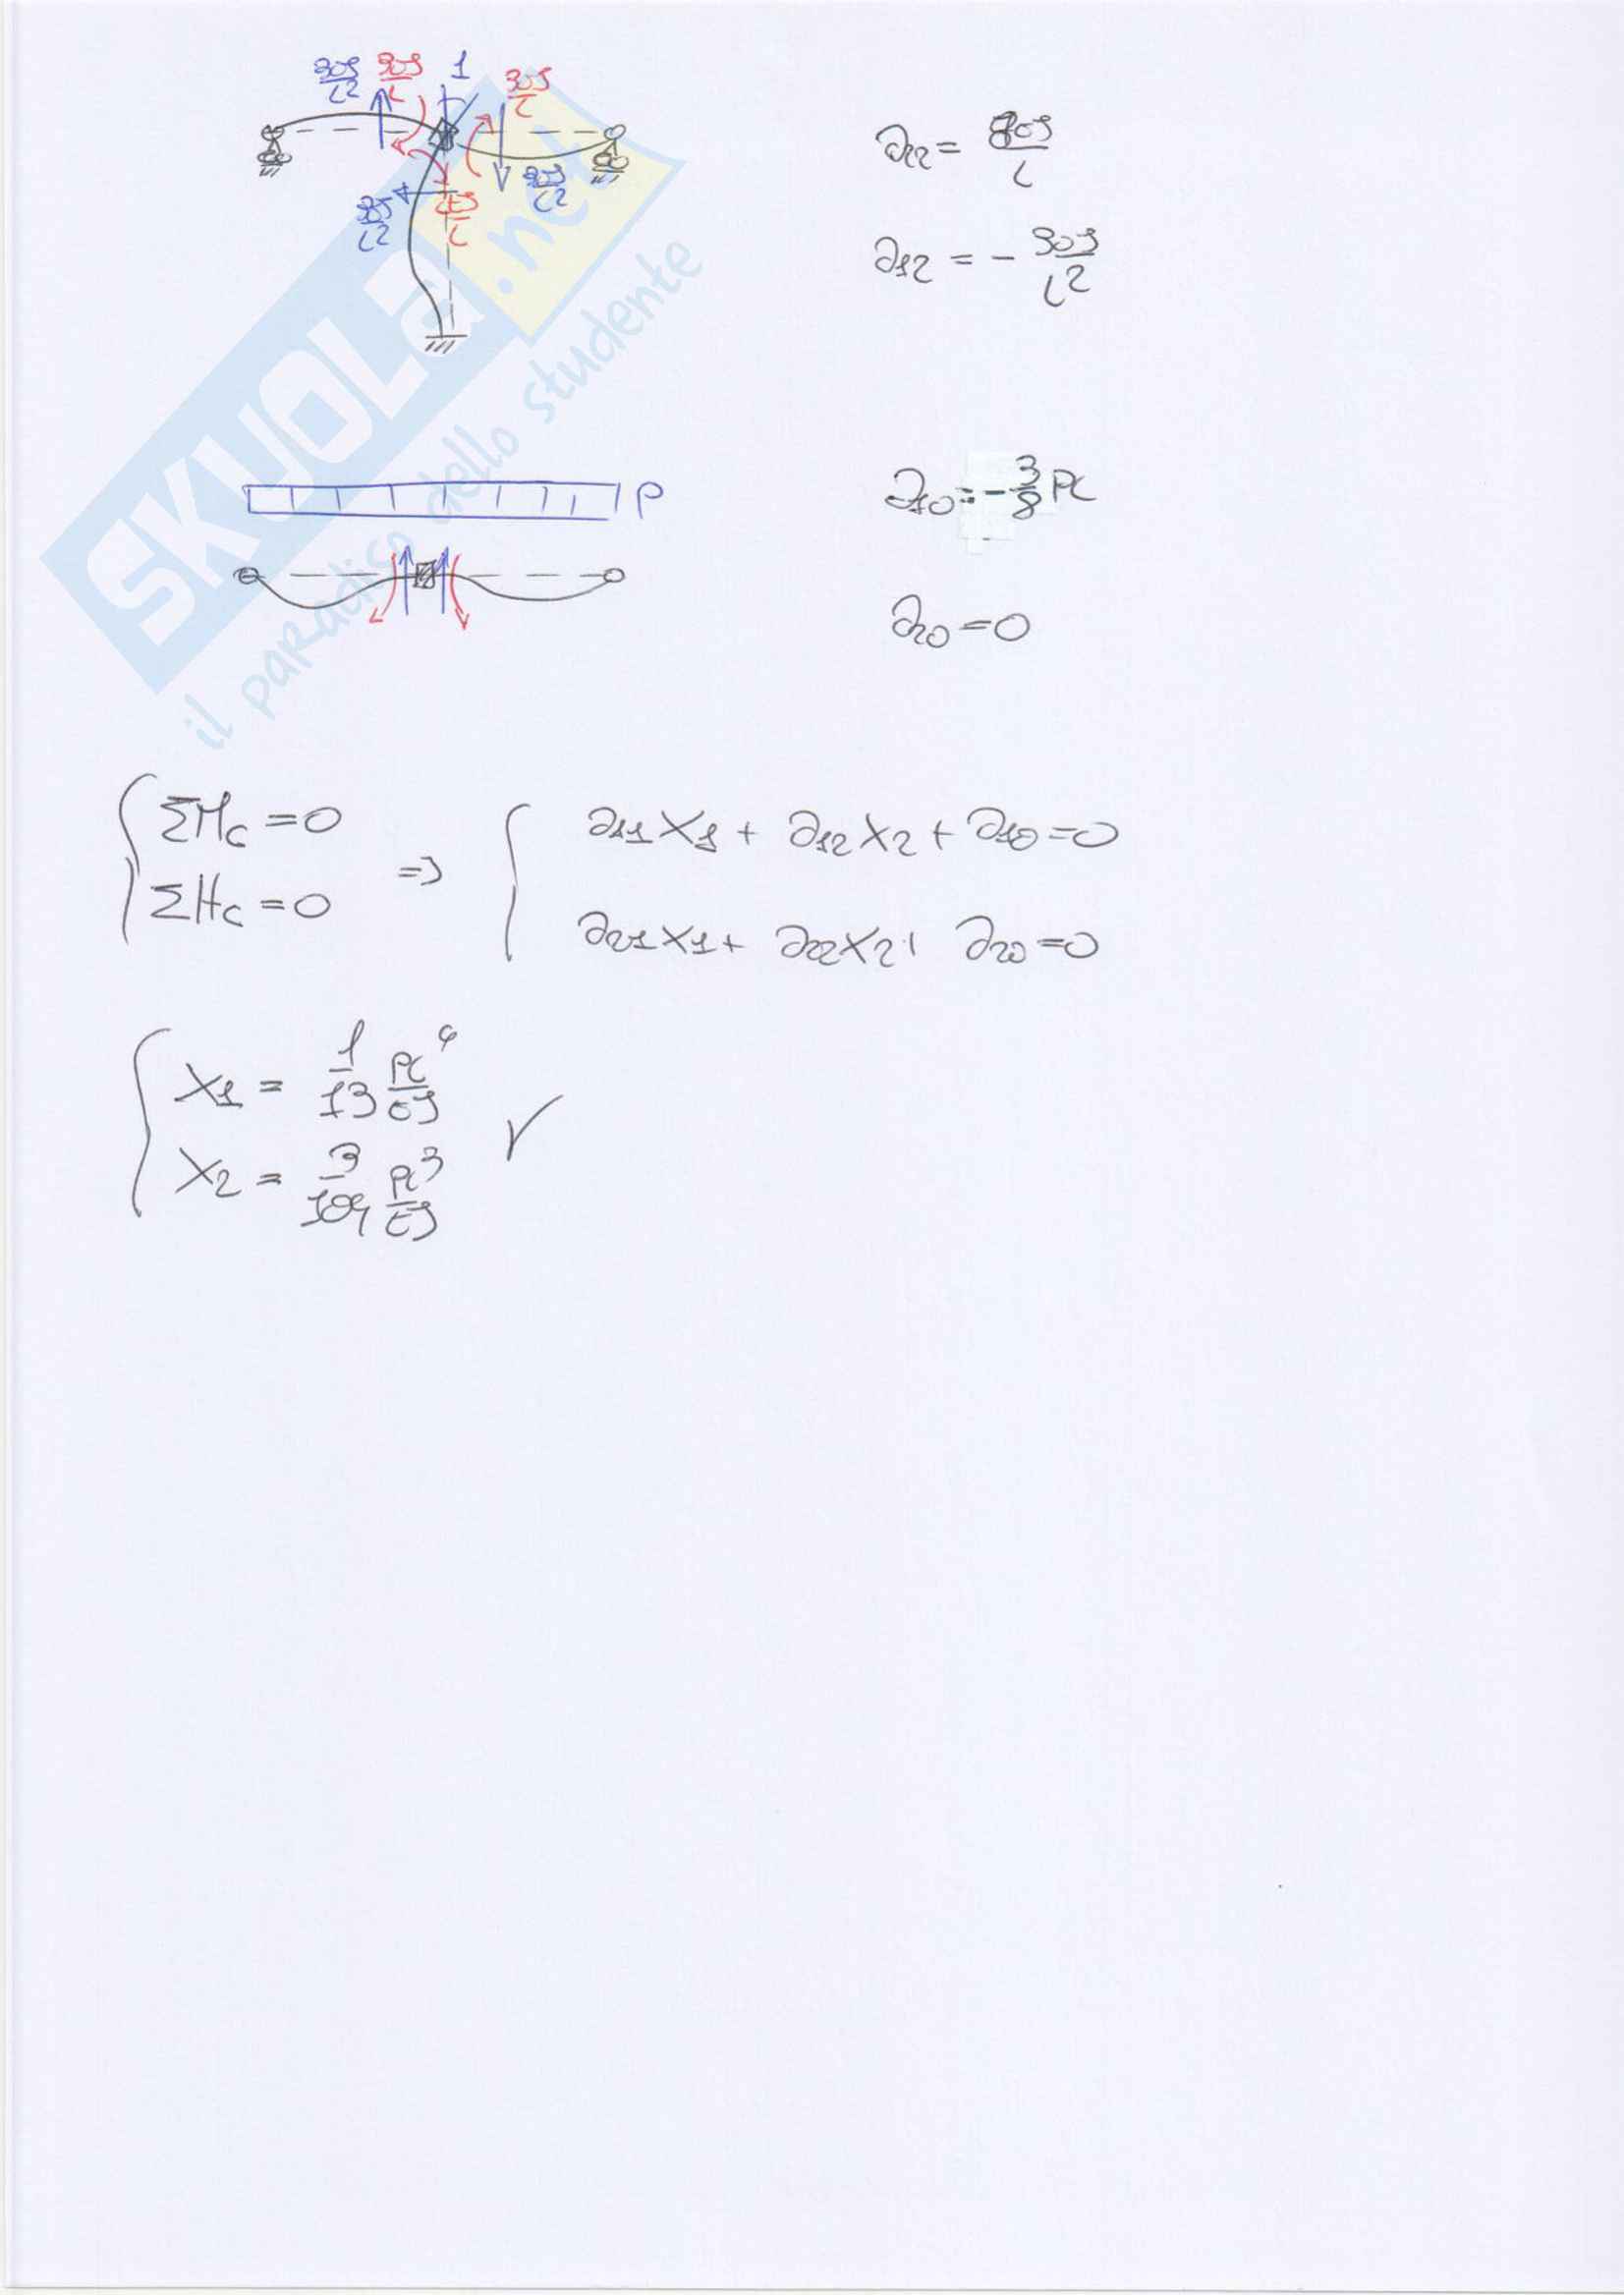 3EJ/L² 3EJ/L 1 3EJ/L
3EJ/L² 3EJ/L²
a₂₂ = 8EJ/L
a₁₂ = - 3EJ/L²
P
a₁₀ = - 3/8 PL
a₂₀ = 0
ΣM_C = 0
ΣH_C = 0
=>
a₁₁X₁ + a₁₂X₂ + a₁₀ = 0
a₂₁X₁ + a₂₂X₂ + a₂₀ = 0
X₁ = 1/13 PL⁴/EJ
X₂ = 3/104 PL³/EJ
SKUOLa.net
il paradiso dello studente